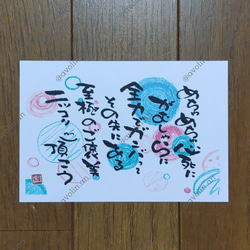 めちゃめちゃ必死に
がむしゃらに
全力でガンバって
その先にある
至極のご褒美
ニッコリ頂こう